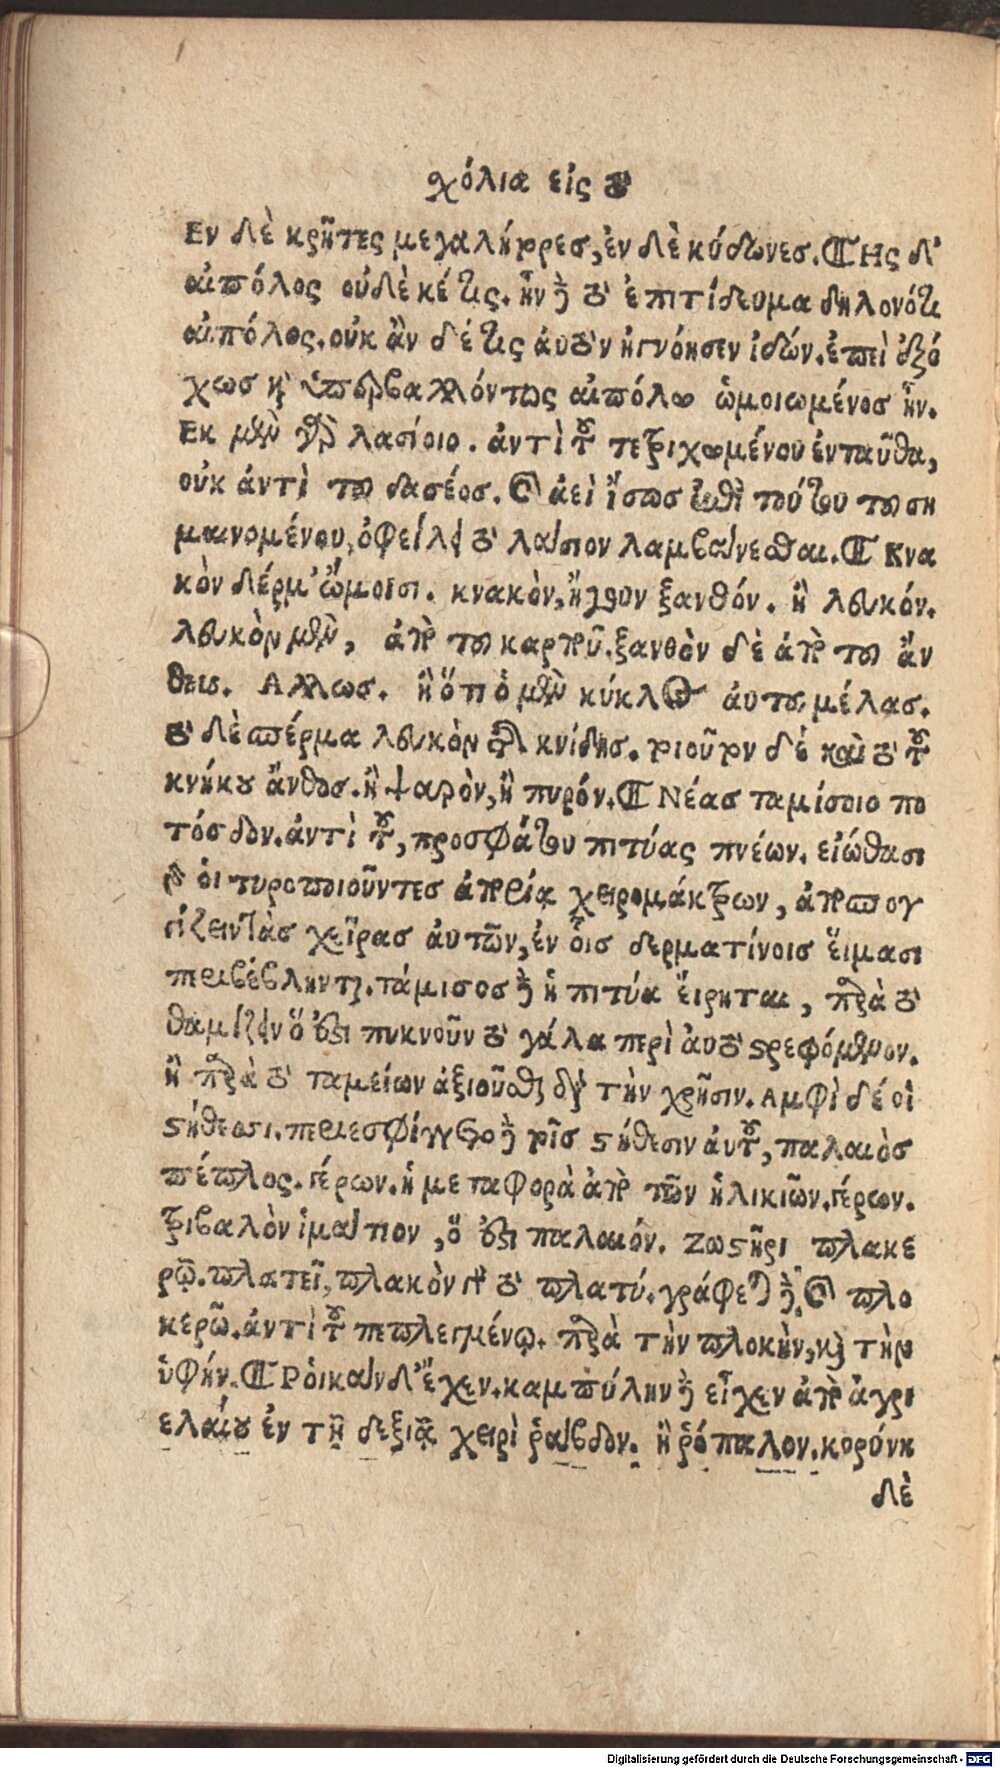 χόλια εἰς τὸ
Εν δὲ κρῆτες μεγαλήτορες, ἐν δὲ κύδωνες. ¶ Ης δ'
αἰπόλος οὐδὲ κέ τις. ἦν γὰρ τὸ ἐπιτίδευμα δηλονότι
αἰπόλος. οὐκ ἂν δέ τις ἀυτὸν ἠγνόησεν ἰδών. ἐπεὶ ἐξό
χως καὶ ὑπερβαλλόντως αἰπόλῳ ὡμοιωμένος ἦν.
Εκ μὲν γὰρ λασίοιο. ἀντὶ τοῦ τετριχωμένου ἐνταῦθα,
οὐκ ἀντὶ τοῦ δασέος. καὶ ἀεὶ ἴσως ἐπὶ τούτου τοῦ ση
μαινομένου, ὀφείλει τὸ λαίσιον λαμβαίνεσθαι. ¶ Κνα
κὸν δέρμ' ὤμοισι. κνακὸν, ἤτοι ξανθόν. ἢ λευκόν.
λευκὸν μὲν, ἀπὸ τοῦ καρποῦ. ξανθὸν δὲ ἀπὸ τοῦ ἄν
θεις. Αλλως. ἢ ὅτι ὁ μὲν κύκλος ἀυτοῦ μέλας.
τὸ δὲ σπέρμα λευκὸν κνίδης. τιοῦτον δέ καὶ τὸ τοῦ
κνήκου ἄνθος. ἢ ψαρὸν, ἢ πυρόν. ¶ Νέας ταμίσοιο πο
τόσδον. ἀντὶ τοῦ, προσφάτου πιτύας πνέων. εἰώθασι
γὰρ ὁι τυροποιοῦντες ἀπορίᾳ χειρομάκτρων, ἀποσπογ
γίζειν τὰς χεῖρας ἀυτῶν, ἐν ὁῖς δερματίνοις ἕιμασι
περιβέβληνται. τάμισος γὰρ ἡ πιτύα ἔιρηται, παρὰ τὸ
θαμίζειν ὅ ἐστι πυκνοῦν τὸ γάλα περὶ ἀυτὸ στρεφόμενον.
ἢ παρὰ τὸ ταμείων ἀξιοῦσθαι διὰ τὴν χρῆσιν. Αμφὶ δέ οἱ
στήθεσσι. περιεσφίγγετο γὰρ τοῖς στήθεσιν ἀυτοῦ, παλαιὸς
πέπλος. γέρων. ἡ μεταφορὰ ἀπὸ τῶν ἡλικιῶν. γέρων.
τριβαλὸν ἱμαίτιον, ὅ ἐστι παλαιόν. Ζωστῆρι πλακε
ρῷ. πλατεῖ, πλακὸν γὰρ τὸ πλατύ. γράφεται καὶ πλο
κερῶ. ἀντὶ τοῦ πεπλεγμένῳ. παρὰ τὴν πλοκὴν, καὶ τὴν
ὑφήν. ¶ Ροικαὶν δ' ἔχεν. καμπύλην γὰρ εἶχεν ἀπὸ ἀγρι
ελαίου ἐν τῇ δεξιᾷ χειρὶ ῥαίβδον. ἢ ῥόπαλον. κορύνη
δὲ
Digitalisierung gefördert durch die Deutsche Forschungsgemeinschaft - DFG